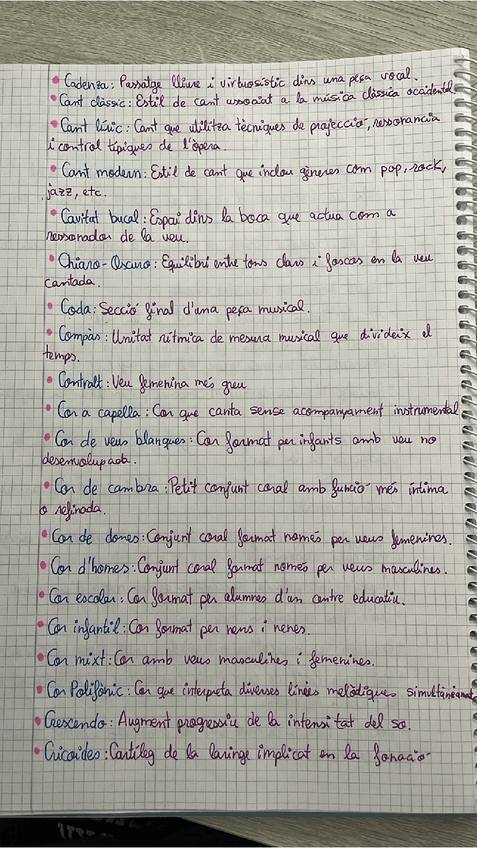 • Cadenza: Passatge lliure i virtuosístic dins una peça vocal.
• Cant clàssic: Estil de cant associat a la música clàssica occidental.
• Cant líric: Cant que utilitza tècniques de projecció, ressonància
i control típiques de l'òpera.
• Cant modern: Estil de cant que inclou gèneres com pop, rock,
jazz, etc.
• Cavitat bucal: Espai dins la boca que actua com a
ressonador de la veu.
• Chiaro-Oscuro: Equilibri entre tons clars i foscos en la veu
cantada.
• Coda: Secció final d'una peça musical.
• Compàs: Unitat rítmica de mesura musical que divideix el
temps.
• Contralt: Veu femenina més greu
• Cor a capella: Cor que canta sense acompanyament instrumental
• Cor de veus blanques: Cor format per infants amb veu no
desenvolupada.
• Cor de cambra: Petit conjunt coral amb funció més íntima
o refinada.
• Cor de dones: Conjunt coral format només per veus femenines.
• Cor d'homes: Conjunt coral format només per veus masculines.
• Cor escolar: Cor format per alumnes d'un centre educatiu.
• Cor infantil: Cor format per nens i nenes.
• Cor mixt: Cor amb veus masculines i femenines.
• Cor Polifònic: Cor que interpreta diverses línies melòdiques simultàniament
• Crescendo: Augment progressiu de la intensitat del so.
• Cricoides: Cartíleg de la laringe implicat en la fonació